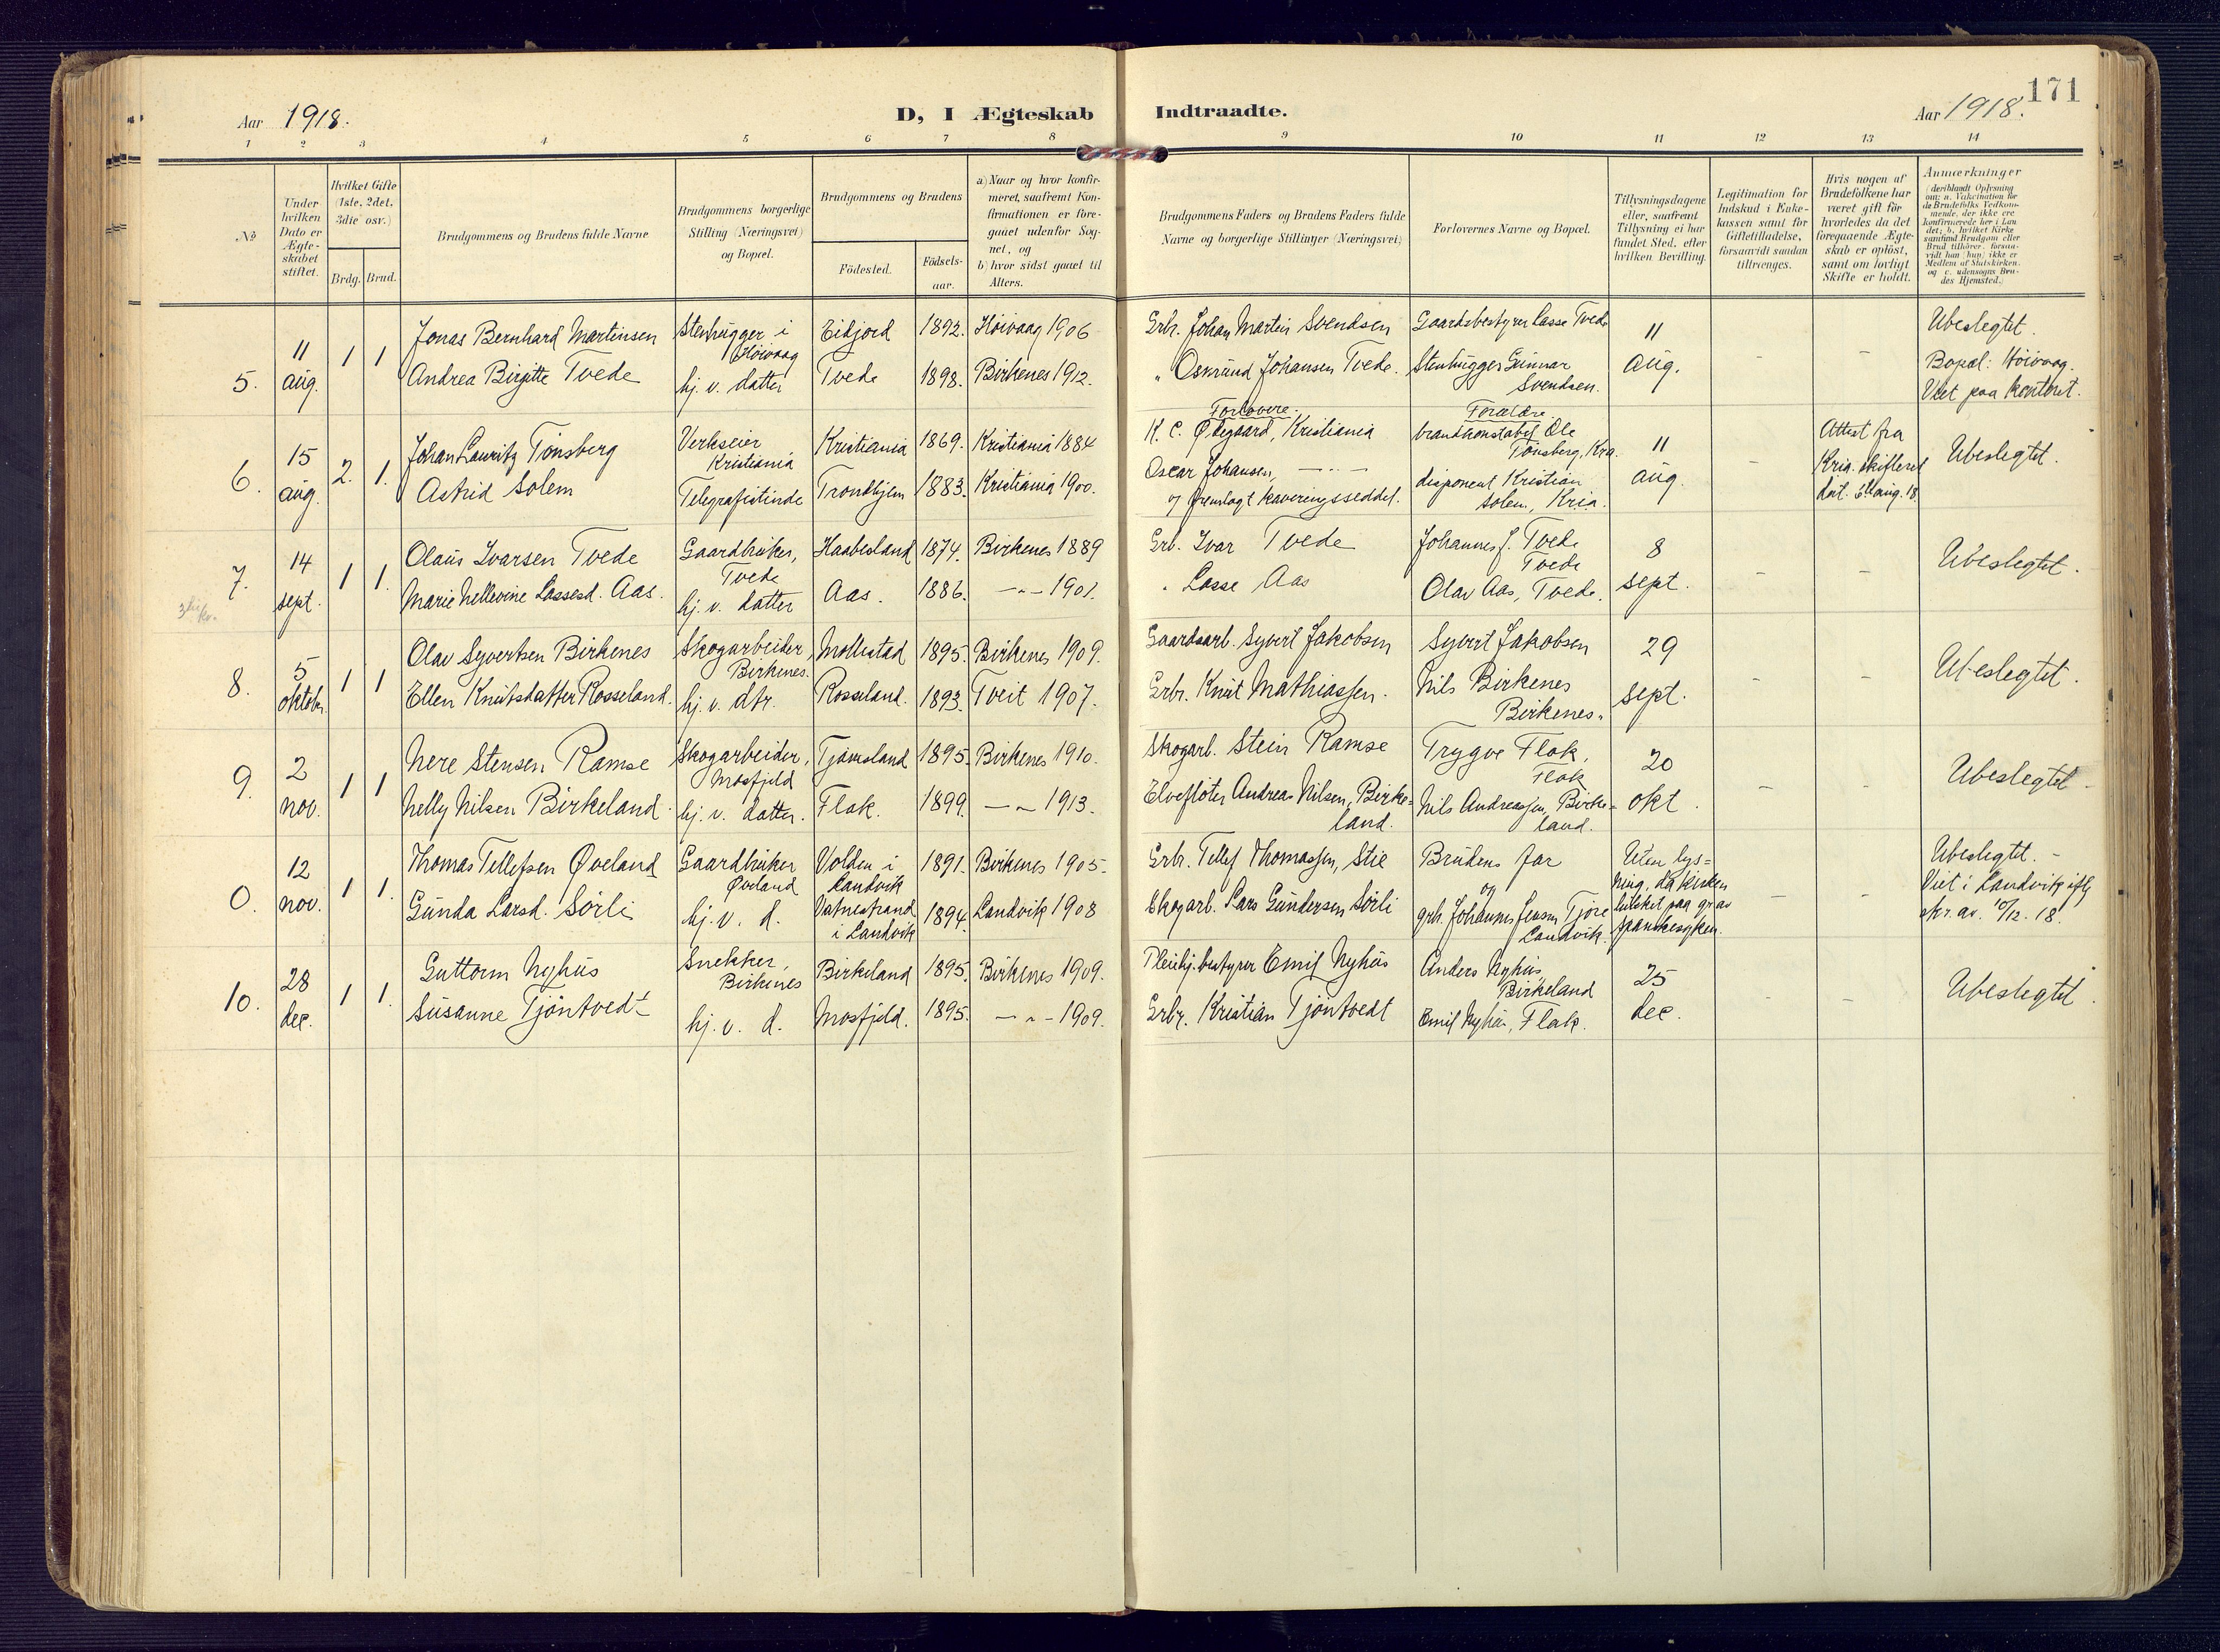 171
Aar 1918.
D, I Ægteskab Indtraadte.
Aar 1918.
1 2 3 4 5 6 7 8 9 10 11 12 13 14
№
Under
hvilken
Dato er
Ægte-
skabet
stiftet.
Hvilket Gifte
(1ste, 2det,
3die osv.)
Brdg. Brud.
Brudgommens og Brudens fulde Navne
Brudgommens borgerlige
Stilling (Næringsvei)
og Bopæl.
Brudgommens og Brudens
Födested.
Födsels-
aar.
a) Naar og hvor konfir-
meret, saafremt Kon-
firmationen er fore-
gaaet udenfor Sog-
net, og
b) hvor sidst gaaet til
Alters.
Brudgommens Faders og Brudens Faders fulde
Navne og borgerlige Stillinger (Næringsvei)
Forlovernes Navne og Bopæl.
Tillysningsdagene
eller, saafremt
Tillysning ei har
fundet Sted, efter
hvilken Bevilling.
Legitimation for
Indskud i Enke-
kassen samt for
Giftetilladelse,
forsaavidt saadan
tiltrænges.
Hvis nogen af
Brudefolkene har
været gift för
hvorledes da det
foregaaende Ægte-
skab er oplöst,
samt om lovligt
Skifte er holdt.
Anmærkninger
(deriblandt Oplysning
om: a. Vakcination for
de Brudefolks Vedkom-
mende, der ikke ere
konfirmerede her i Lan
det; b. hvilket Kirke
samfund Brudgom eller
Brud tilhörer, forsaa-
vidt han (hun) ikke er
Medlem af Statskirken,
og c. udensogns Bru-
des Hjemsted.)
5.
11
aug.
1 1
Jonas Bernhard Martinsen
Andrea Birgitte Tvede
Stenhugger i
Höivaag
hj. v. datter
Eidjord
Tvede
1892.
1898.
Höivaag 1906
Birkenes 1912.
Grbr. Johan Martin Svendsen
" Osmund Johansen Tvede.
Gaardsbestyrer Lasse Tvede
Stenhugger Gunnar
Svendsen.
11
aug.
-
-
Ubeslegtet.
Bopæl: Höivaag.
Viet paa kontoret.
6.
15
aug.
2. 1.
Johan Lauritz Tönsberg
Astrid Solem
Verkseier
Kristiania
Telegrafistinde
Kristiania
Trondhjem
1869.
1883.
Kristiania 1884
Kristiania 1900.
Forlovere.
K. C. Ödegaard, Kristiania
Oscar Johansen, — " —
Forældre.
brandkonstabel Ole
Tönsberg, Kra.
disponent Kristian
Solem, Kria.
11
aug.
-
Attest fra
Kria. skifteret
Ubeslegtet.
7.
14
sept.
1 1.
Olaus Ivarsen Tvede
Marie Nellevine Lassesd. Aas.
Gaardbruker,
Tvede
hj. v. datter
Haabesland
Aas.
1874.
1886.
Birkenes 1889
— " — 1901.
Grb. Ivar Tvede
" Lasse Aas
Johannes J. Tvede
Tvede
Olav Aas, Tvede.
8
sept.
-
-
Ubeslegtet.
8.
5
oktober.
1 1
Olav Syvertsen Birkenes
Ellen Knutsdatter Rosseland.
Skogarbeider,
Birkenes.
hj. v. dtr.
Mollestad
Rosseland.
1895.
1893.
Birkenes 1909.
Tveit 1907.
Gaardsarb. Syvert Jakobsen
Grbr. Knut Mathiassen.
Syvert Jakobsen
Nils Birkenes
Birkenes.
29
sept.
-
-
Ubeslegtet.
9.
2
nov.
1 1
Nere Stensen Ramse
Nelly Nilsen Birkeland.
Skogarbeider,
Mosfjeld
hj. v. datter.
Tjömesland
Flak.
1895.
1899.
Birkenes 1910.
— " 1913.
Skogarb. Stein Ramse
Elveflöter Andreas Nilsen, Birke=
land.
Trygve Flak,
Flak
Nils Andreassen, Birke=
land.
20
okt.
-
-
Ubeslegtet
0.
12
nov.
1 1.
Thomas Tellefsen Öveland
Gunda Larsd. Sörli
Gaardbruker
Öveland
hj. v. d.
Volden i
Landvik
Vatnestrand
i Landvik
1891.
1894.
Birkenes 1905.
Landvik 1908
Grbr. Tellef Thomassen, Stie
Skogarb. Lars Gundersen Sörli
Brudens far
og
grb. Johannes Jensen Tjöre
Landvik.
Uten lys=
ning, da kirken
lukket paa gr. av
spanskesyken.
-
-
Ubeslegtet.
Viet i Landvik iflg
skr. av. 10/12. 18.
10.
28
dec.
1 1.
Guttorm Nyhus
Susanne Tjöntvedt
Snekker,
Birkenes
hj. v. d.
Birkeland
Mosfjeld.
1895.
1895.
Birkenes 1909.
— " — 1909.
Pleiehj.bestyrer Emil Nyhus
Grbr. Kristian Tjöntvedt
Anders Nyhus,
Birkeland
Emil Nyhus, Flak.
25
dec.
-
-
Ubeslegtet.